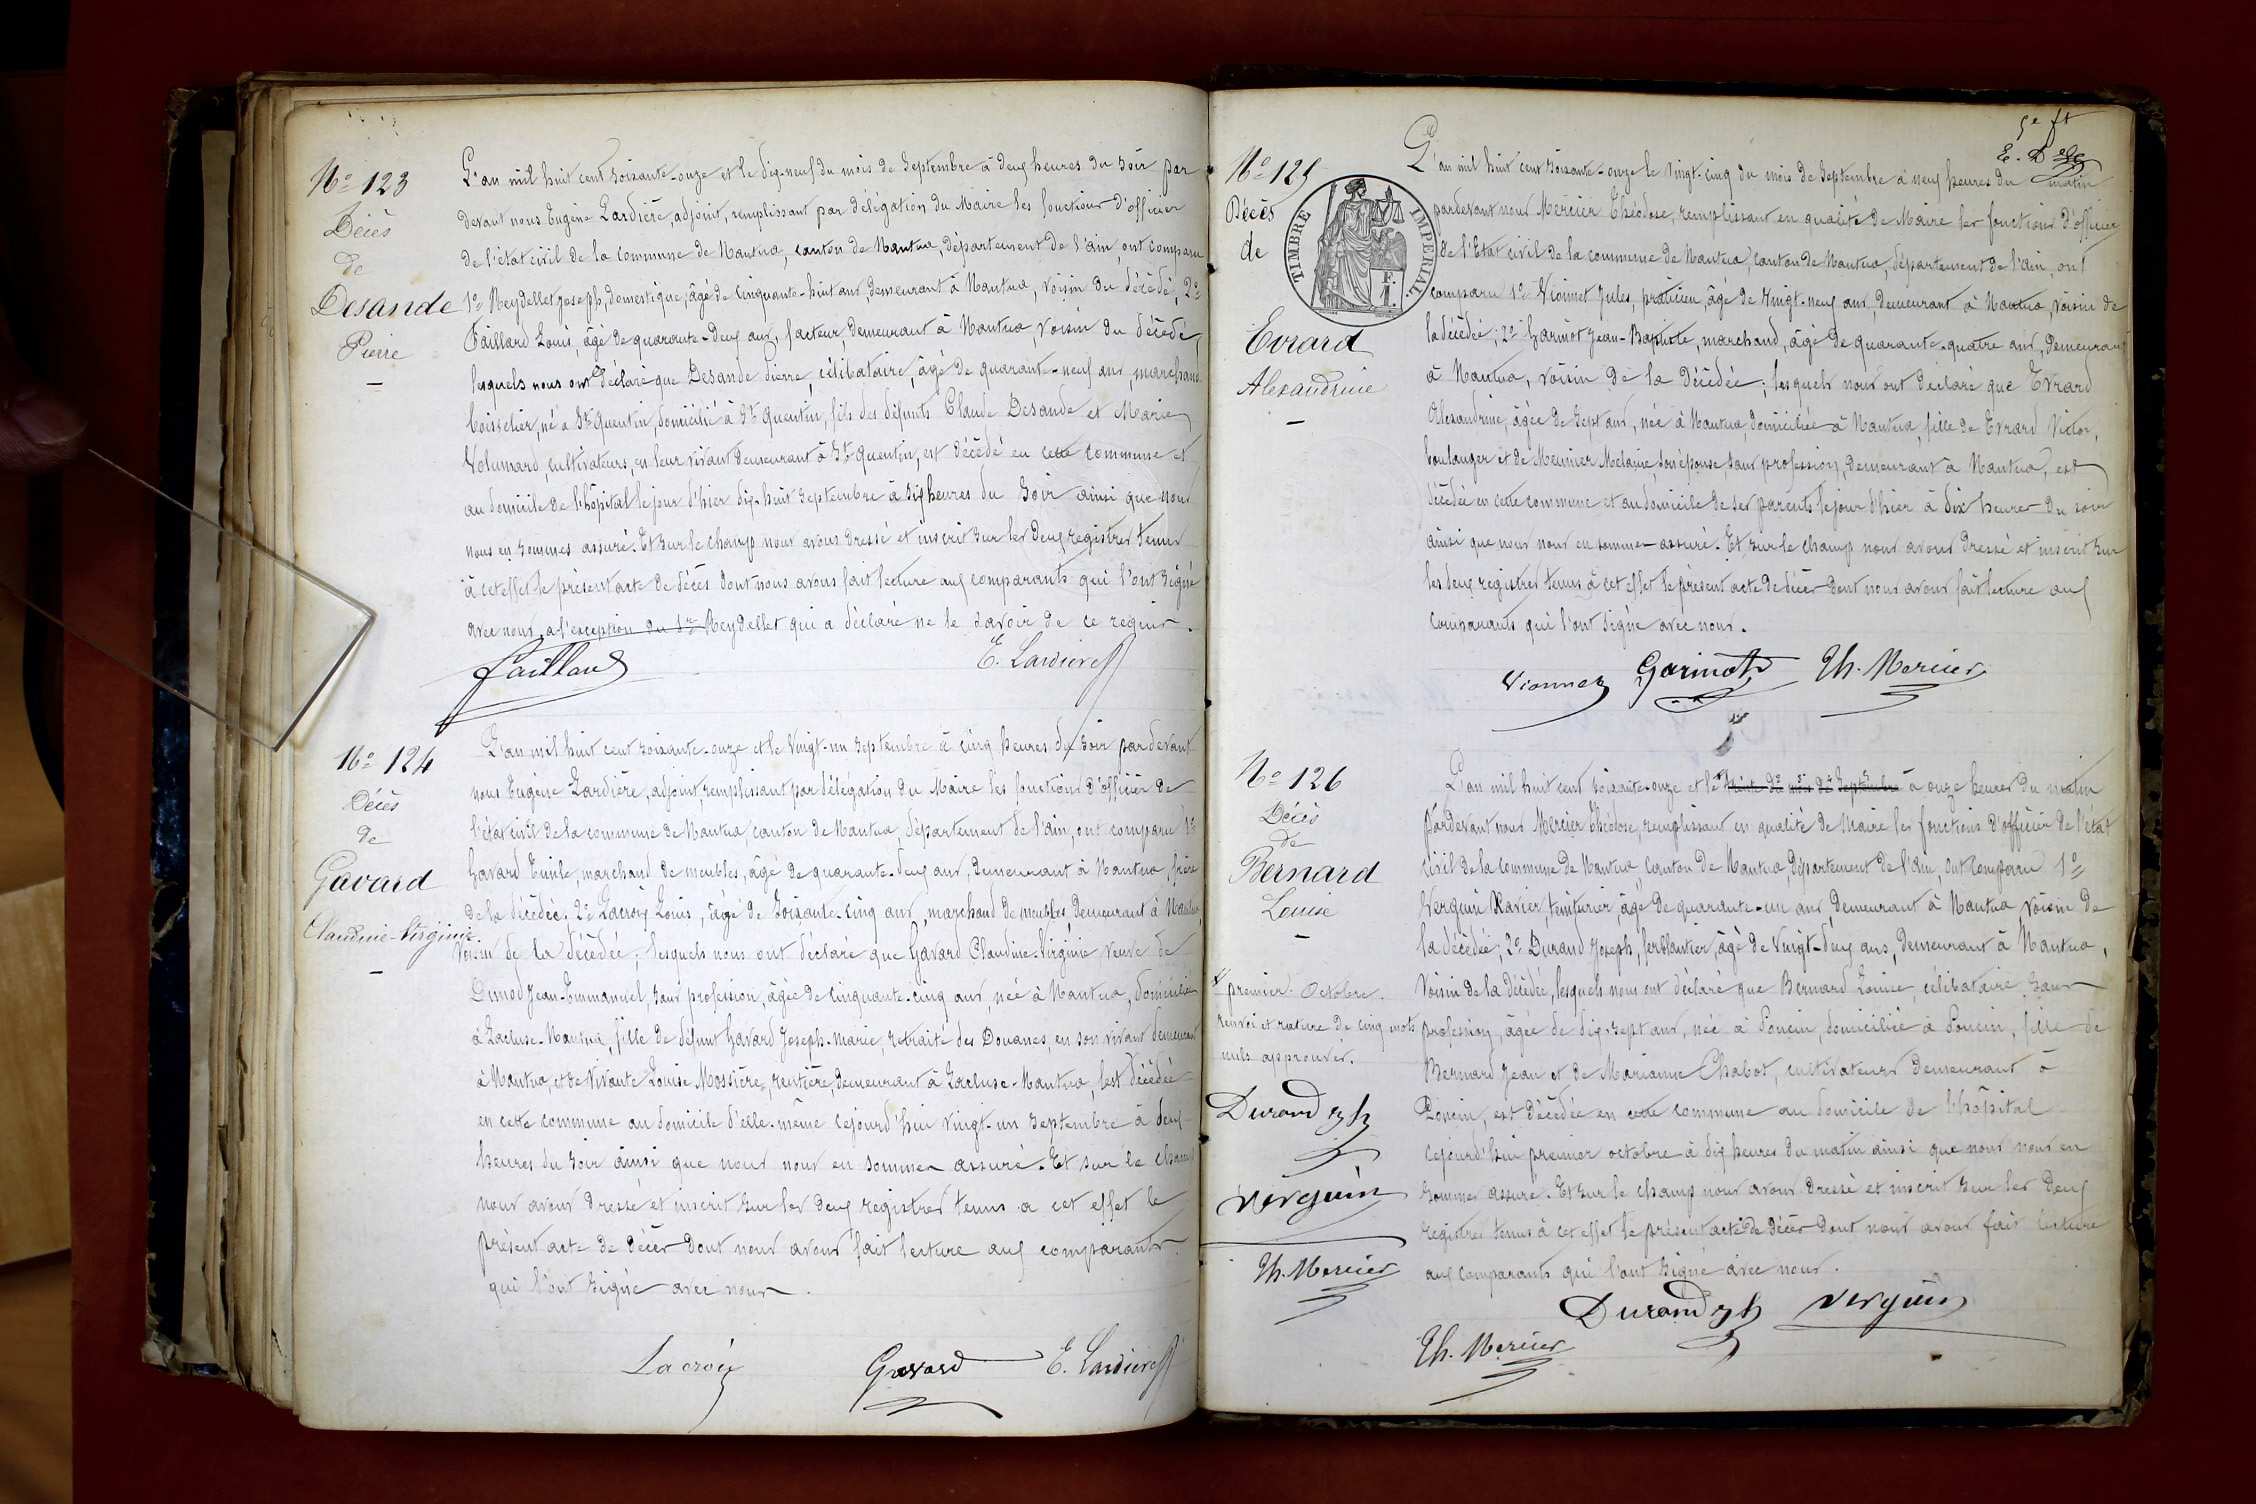 Nº 123
Décès
de
Desande
Pierre
L'an mil huit cent soixante-onze et le dix-neuf du mois de Septembre à deux heures du soir par
devant nous Eugène Lardière, adjoint, remplissant par délégation du Maire les fonctions d'officier
de l'état civil de la commune de Nantua, canton de Nantua, département de l'ain, ont comparu
1º Reydellet Joseph, domestique, âgé de cinquante-huit ans, demeurant à Nantua, voisin du décédé, 2º
Faillard Louis, âgé de quarante-deux ans, facteur, demeurant à Nantua, voisin du décédé,
lesquels nous ont déclaré que Desande Pierre, célibataire, âgé de quarante-neuf ans, marchand
boisselier, né à St quentin, domicilié à St quentin, fils des défunts Claude Desande et Marie
Volumard, cultivateurs, en leur vivant demeurant à St quentin, est décédé en cette commune et
au domicile de l'hôpital le jour d'hier dix-huit septembre à six heures du soir ainsi que nous
nous en sommes assuré. Et sur le champ nous avons dressé et inscrit sur les deux registres tenus
à cet effet le présent acte de décès dont nous avons fait lecture aux comparants qui l'ont signé
avec nous, a l'exception du 1er Reydellet qui a déclaré ne le savoir de ce requis.
Faillard E. Lardière
Nº 124
Décès
de
Gavard
Claudine-Virginie
L'an mil huit cent soixante-onze et le vingt-un septembre à cinq heures du soir par devant
nous Eugène Lardière, adjoint, remplissant par délégation du Maire les fonctions d'officier de
l'état civil de la commune de Nantua, canton de Nantua, département de l'ain, ont comparu 1º
Gavard Emile, marchand de meubles, âgé de quarante-deux ans, demeurant à Nantua, frère
de la décédée, 2º Lacroix Louis, âgé de soixante-cinq ans, marchand de meubles demeurant à Nantua,
voisin de la décédée; lesquels nous ont déclaré que Gavard Claudine-Virginie veuve de
Dumod Jean-Emmanuel, sans profession, âgée de cinquante-cinq ans, née à Nantua, domiciliée
à Lacluse-Nantua, fille de défunt Gavard Joseph-Marie, retraité des Douanes, en son vivant demeurant
à Nantua, et de vivante Louise Mossière, rentière, demeurant à Lacluse-Nantua, est décédée
en cette commune au domicile d'elle-même cejourd'hui vingt-un septembre à deux
heures du soir ainsi que nous nous en sommes assuré. Et sur le champ
nous avons dressé et inscrit sur les deux registres tenus à cet effet le
présent acte de décès dont nous avons fait lecture aux comparants
qui l'ont signé avec nous.
Lacroix Gavard E. Lardière
5e ft
Nº 125
Décès
de
Evrard
Alexandrine
TIMBRE IMPERIAL
1 F.
L'an mil huit cent soixante-onze le vingt-cinq du mois de Septembre à neuf heures du matin
pardevant nous Mercier Théodose, remplissant en qualité de Maire les fonctions d'officier
de l'Etat civil de la commune de Nantua, canton de Nantua, département de l'Ain, ont
comparu 1º Vionnet Jules, praticien, âgé de vingt-neuf ans, demeurant à Nantua, voisin de
la décédée; 2º Garinot Jean-Baptiste, marchand, âgé de quarante-quatre ans, demeurant
à Nantua, voisin de la décédée; lesquels nous ont déclaré que Evrard
Alexandrine, âgée de sept ans, née à Nantua, domiciliée à Nantua, fille de Evrard Victor,
boulanger et de Meunier Mélanie, son épouse sans profession, demeurant à Nantua, est
décédée en cette commune et au domicile de ses parents le jour d'hier à dix heures du soir
ainsi que nous nous en sommes assuré. Et sur le champ nous avons dressé et inscrit sur
les deux registres tenus à cet effet le présent acte de décès dont nous avons fait lecture aux
comparants qui l'ont signé avec nous.
Vionnet Garinot Th. Mercier
Nº 126
Décès
de
Bernard
Louise
premier Octobre.
renvoi et rature de cinq mots
nuls approuvés.
Durand Jh
Verguin
Th. Mercier
L'an mil huit cent soixante-onze et le trente du mois de Septembre à onze heures du matin
Pardevant nous Mercier Théodose, remplissant en qualité de Maire les fonctions d'officier de l'état
civil de la commune de Nantua, canton de Nantua, département de l'ain, ont comparu 1º
Verguin Xavier, teinturier, âgé de quarante-un ans, demeurant à Nantua voisin de
la décédée; 2º Durand Joseph, ferblantier, âgé de vingt-deux ans, demeurant à Nantua,
voisin de la décédée, lesquels nous ont déclaré que Bernard Louise, célibataire, sans
profession, âgée de dix-sept ans, née à Poncin, domiciliée à Poncin, fille de
Bernard Jean et de Marianne Chabot, cultivateurs demeurant à
Poncin, est décédée en cette commune au domicile de l'hôpital
cejourd'hui premier octobre à dix heures du matin ainsi que nous nous en
sommes assuré. Et sur le champ nous avons dressé et inscrit sur les deux
registres tenus à cet effet le présent acte de décès dont nous avons fait lecture
aux comparants qui l'ont signé avec nous.
Durand Jh Verguin
Th. Mercier